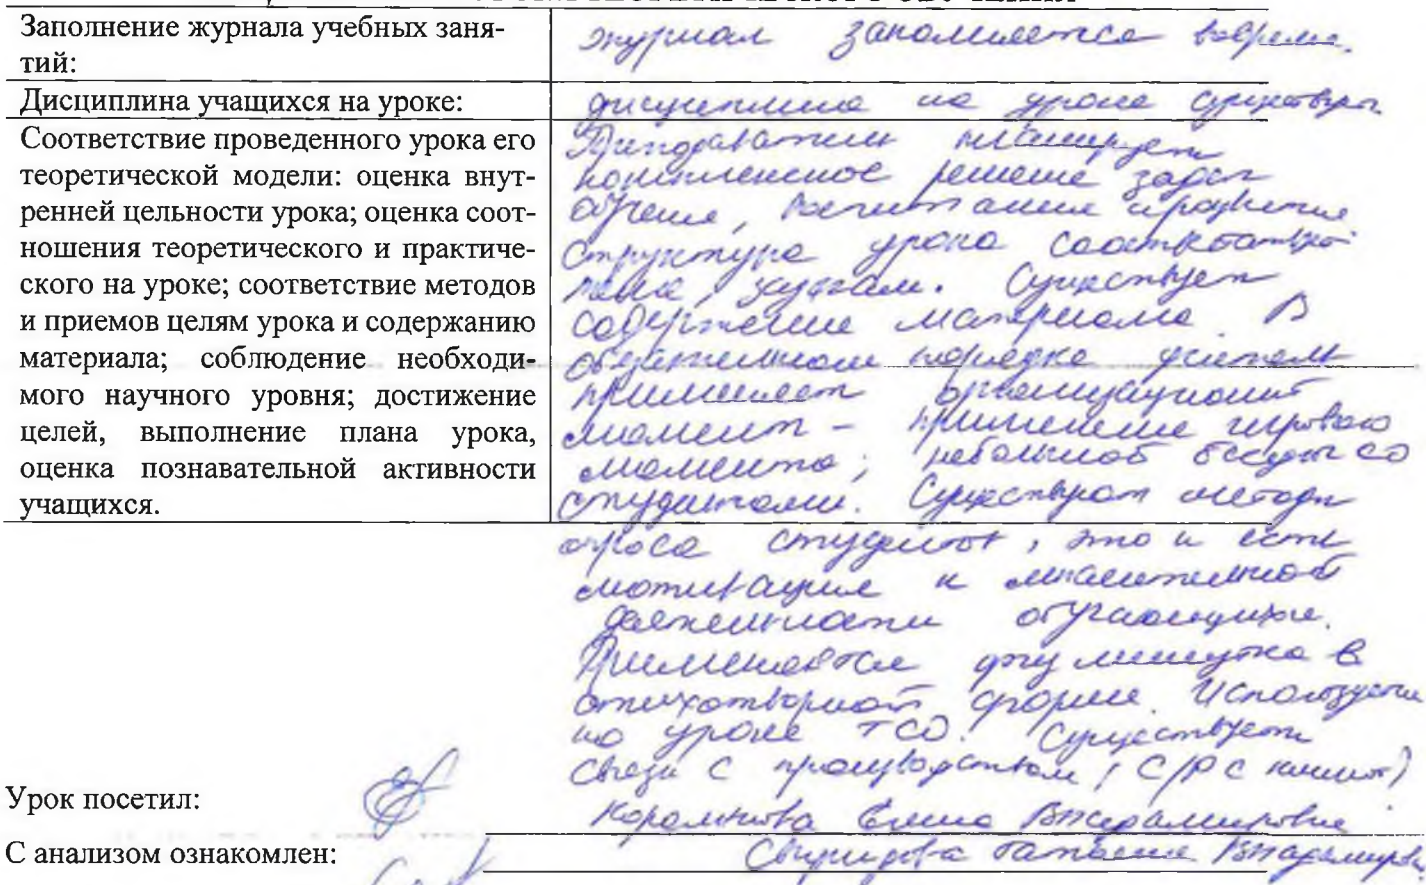 Заполнение журнала учебных заня-
тий:
журнал заполняется вовремя.
Дисциплина учащихся на уроке:
дисциплина на уроке существует
Соответствие проведенного урока его
теоретической модели: оценка внут-
ренней цельности урока; оценка соот-
ношения теоретического и практиче-
ского на уроке; соответствие методов
и приемов целям урока и содержанию
материала; соблюдение необходи-
мого научного уровня; достижение
целей, выполнение плана урока,
оценка познавательной активности
учащихся.
Преподаватель планирует
комплексное решение задач
обучения, воспитания и развития
структура урока соответствует
задачам. Существует
содержание материала. В
обязательном порядке учитель
применяет организационный
момент - применение игрового
момента; небольшой беседы со
студентами. Существуют методы
опроса студентов, это и есть
мотивация к мыслительной
деятельности обучающихся.
Применяется физминутка в
стихотворной форме. Используется
на уроке ТСО. Существует
связь с производством, (С/р с книгой)
Урок посетил:
Елена Владимировна
С анализом ознакомлен:
Свиридова Татьяна Владимировна